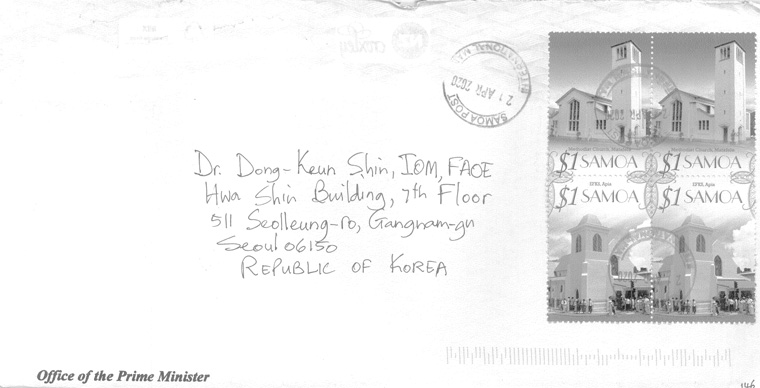 SAMOA POST
21 APR 2020
INTERNATIONAL M
Dr. Dong-Keun Shin, IOM, FAOE
Hwa Shin Building, 7th Floor
511 Seolleung-ro, Gangnam-gu
Seoul 06150
REPUBLIC OF KOREA
$1 SAMOA
$1 SAMOA
EFKS, Apia
EFKS, Apia
$1 SAMOA
$1 SAMOA
Office of the Prime Minister
146